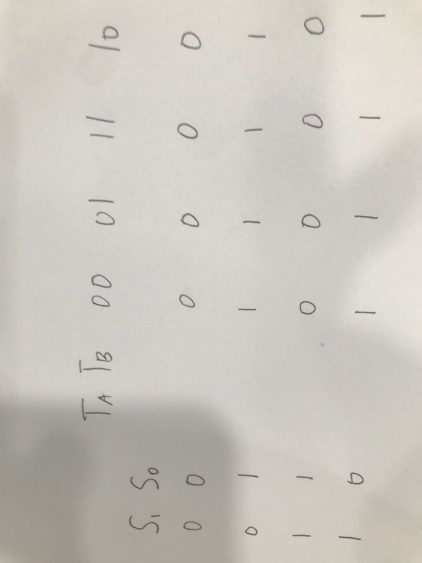 T_A T_B 00 01 11 10
S₁ S₀
0 0 0 0 0 0
0 1 1 1 1 1
1 1 0 0 0 0
1 0 1 1 1 1